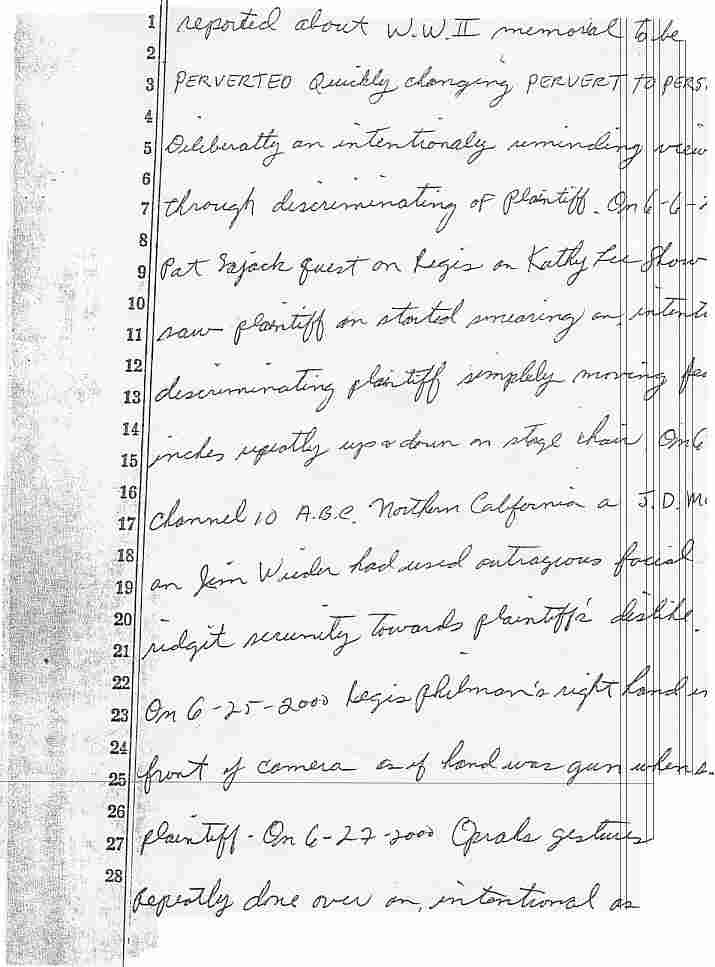 1 reported about W.W II memorial to be
2
3 PERVERTED Quickly changing PERVERT TO PERS
4
5 Deliberatly an intentionaly reminding view
6
7 through discriminating of Plaintiff. On 6-6-2
8
9 Pat Sajack quest on Regis an Kathy Lee Show
10
11 saw plaintiff an started smearing an, intent
12
13 discriminating plaintiff simplely moving
14
15 inches repeatly up & down on stage chair. On 6
16
17 Channel 10 A.B.C. Northern California a J.D. M
18
19 an Jim Wieder had used outrageous facial
20
21 ridgit serunity towards plaintiff's dislike.
22
23 On 6-25-2000 Regis Philman's right hand in
24
25 front of camera as if hand was gun when
26
27 plaintiff. On 6-27-2000 Oprahs gestures
28
Repeatly done over an, intentional as